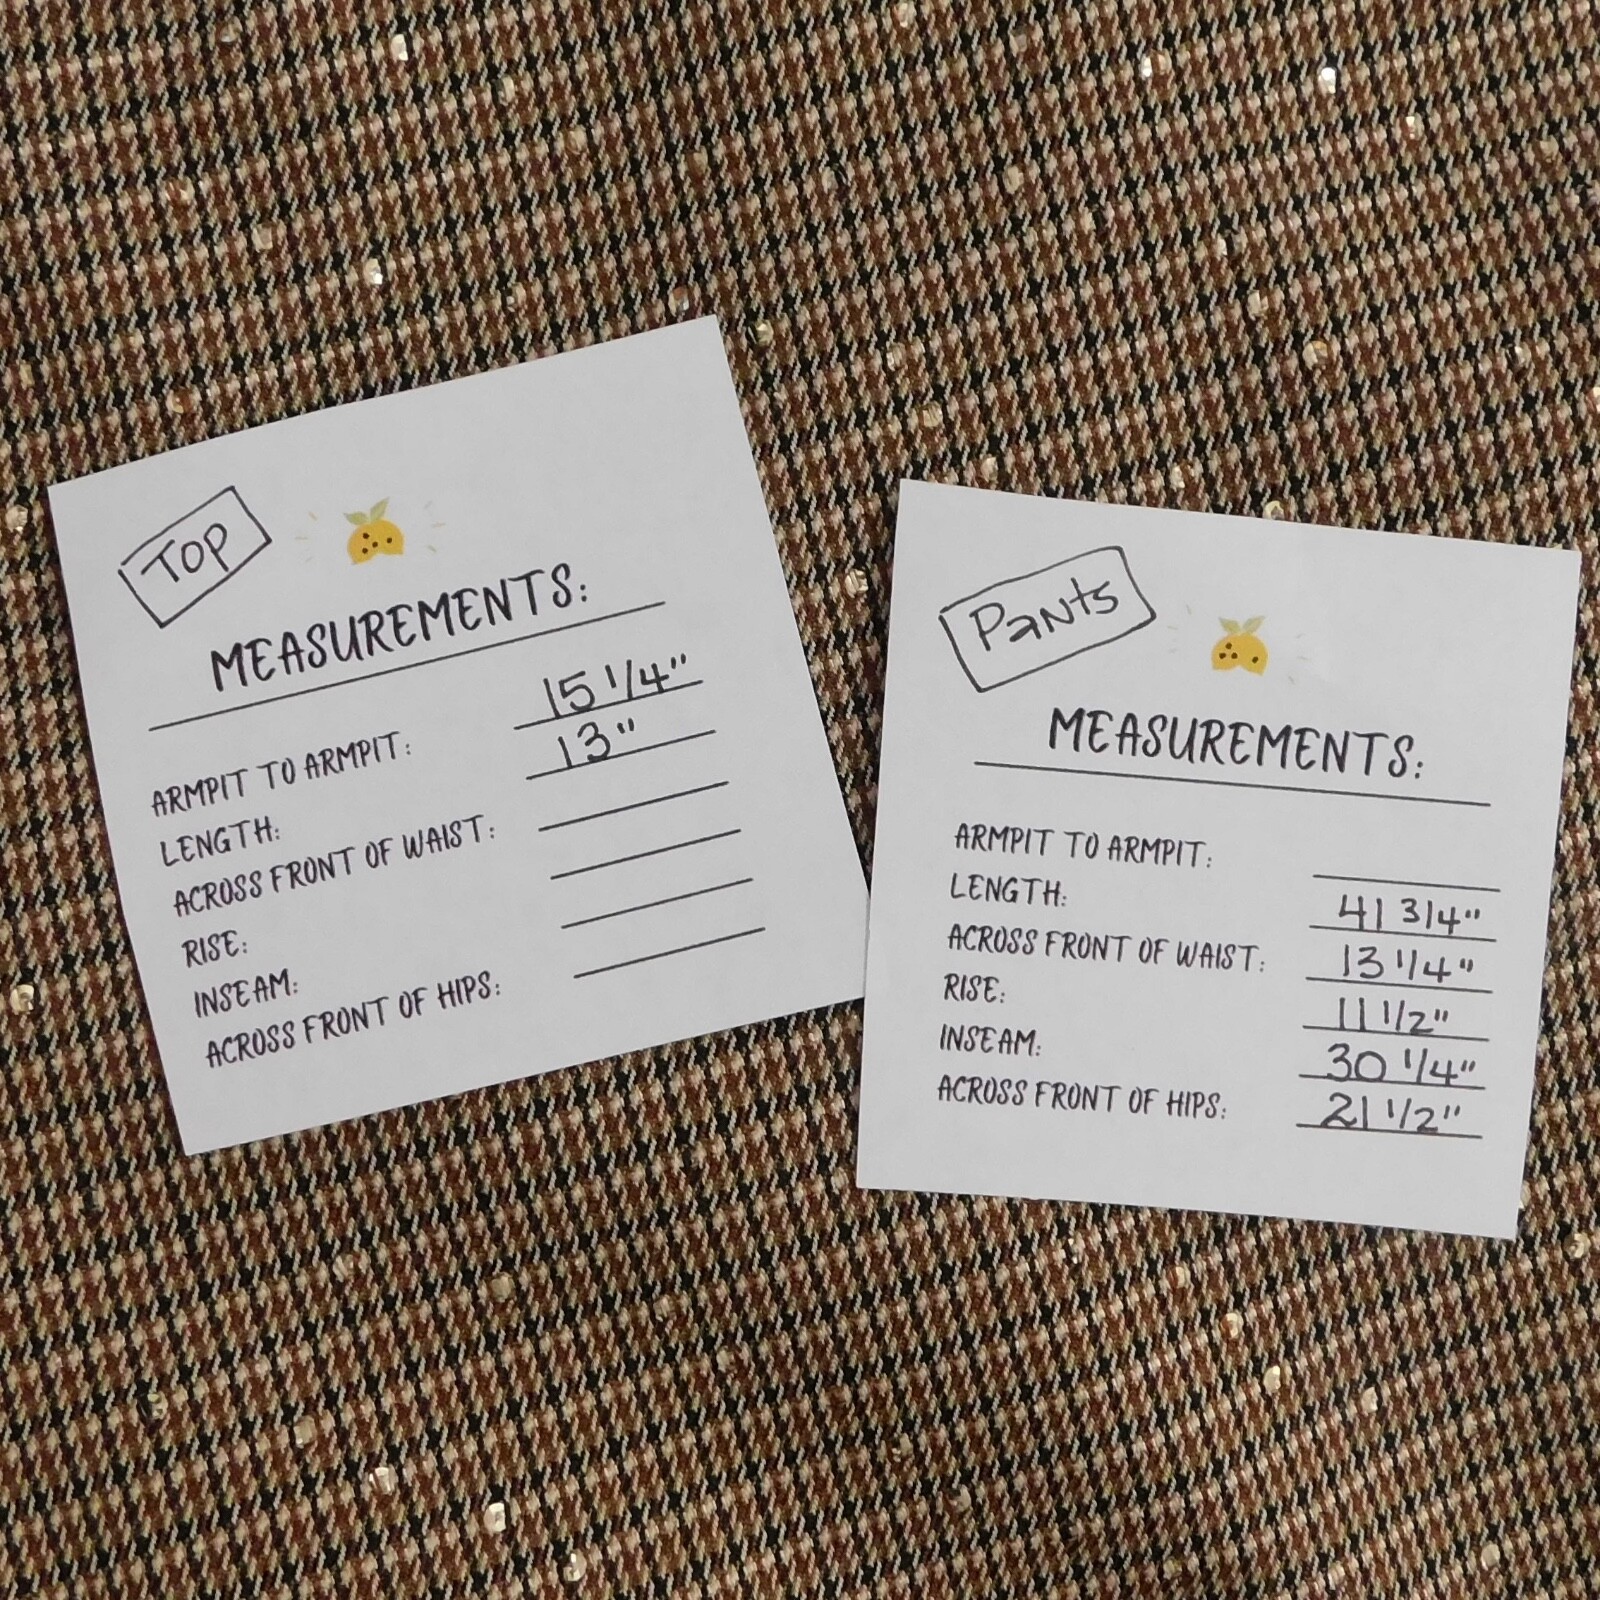 TOP
MEASUREMENTS:
ARMPIT TO ARMPIT: 15 1/4"
LENGTH: 13"
ACROSS FRONT OF WAIST:
RISE:
INSEAM:
ACROSS FRONT OF HIPS:
Pants
MEASUREMENTS:
ARMPIT TO ARMPIT:
LENGTH: 41 3/4"
ACROSS FRONT OF WAIST: 13 1/4"
RISE: 11 1/2"
INSEAM: 30 1/4"
ACROSS FRONT OF HIPS: 21 1/2"